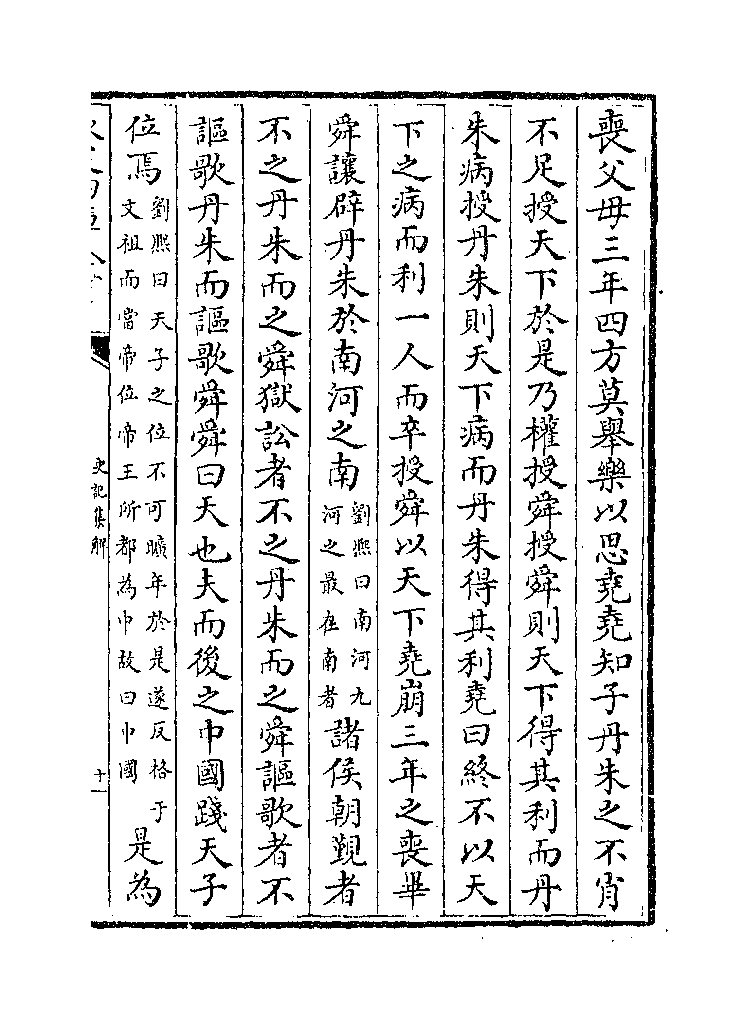 喪父母三年四方莫舉樂以思堯堯知子丹朱之不肖
不足授天下於是乃權授舜授舜則天下得其利而丹
朱病授丹朱則天下病而丹朱得其利堯曰終不以天
下之病而利一人而卒授舜以天下堯崩三年之喪畢
舜讓辟丹朱於南河之南劉熙曰南河九河之最在南者諸侯朝覲者
不之丹朱而之舜獄訟者不之丹朱而之舜謳歌者不
謳歌丹朱而謳歌舜舜曰天也夫而後之中國踐天子
位焉劉熙曰天子之位不可曠年於是遂反格于文祖而當帝位帝王所都為中故曰中國是為
史記集解
十一